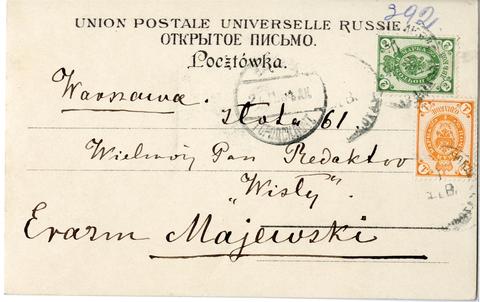 392.
UNION POSTALE UNIVERSELLE RUSSIE.
ОТКРЫТОЕ ПИСЬМО.
Pocztówka.
Warszawa. Złota 61
Wielmoż Pan Redaktor
„Wisły".
Erazm Majewski